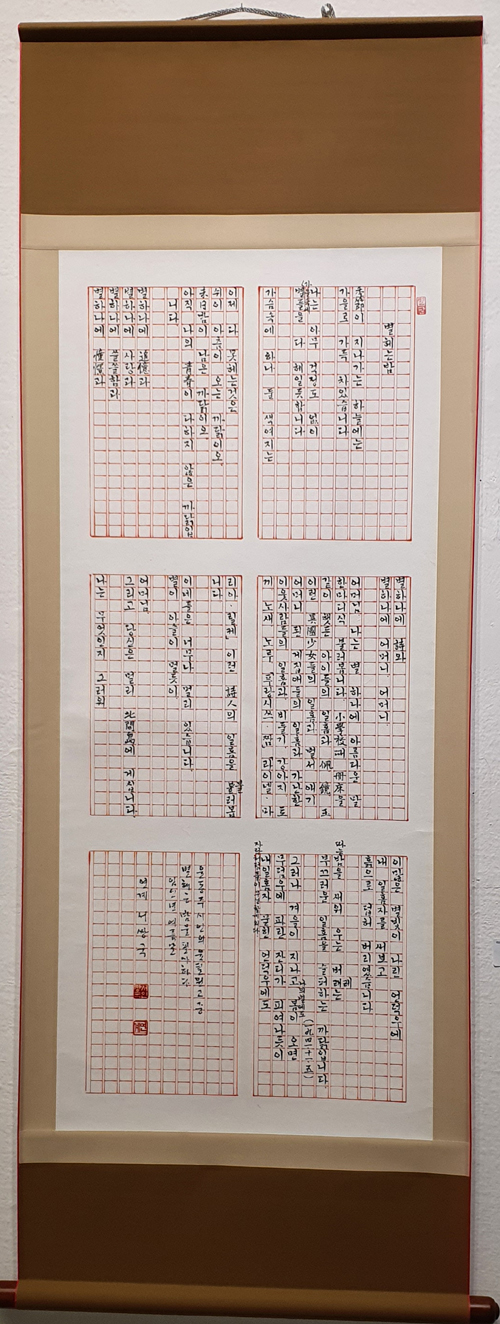 별헤는밤
季節이 지나가는 하늘에는
가을로 가득 차있습니다
나는 아무 걱정도 없이
별들을 다 헤일듯합니다
가슴속에 하나 둘 색여지는
이제 다 못헤는것은
쉬이 아츰이 오는 까닭이오
來日밤이 남은 까닭이오
아직 나의 靑春이 다하지 않은 까닭임
니다
별하나에 追憶과
별하나에 사랑과
별하나에 쓸쓸함과
별하나에 憧憬과
별하나에 詩와
별하나에 어머니 어머니
어머님 나는 별 하나에 아름다운 말
한마디식 불러봅니다 小學校때 冊床을
같이 햇든 아이들의 일홈과 佩 鏡 玉
이런 異國少女들의 일홈과 벌서 애기
어머니 된 게집애들의 일홈과 가난한
이웃사람들의 일홈과 비둘기 강아지 토
끼 노새 노루 푸랑시쓰·짬 라이넬 마
리아·릴케 이런 詩人의 일홈을 불러봅
니다
이네들은 너무나 멀리 있습니다
별이 아슬이 멀듯이
어머님
그리고 당신은 멀리 北間島에 게십니다
나는 무엇인지 그러워
이많은 별빛이 나린 언덕우에
내 일홈자를 써보고
흙으로 덥허 버리엿습니다
따는밤을 새워 우는 버레는
부끄러운 일홈을 슬퍼하는 까닭입니다
(一九四一·十一·五)
그러나 겨울이 지나고 나의별에도 봄이 오면
무덤우에 파란 잔디가 피여나듯이
내일홈자 묻힌 언덕우에도